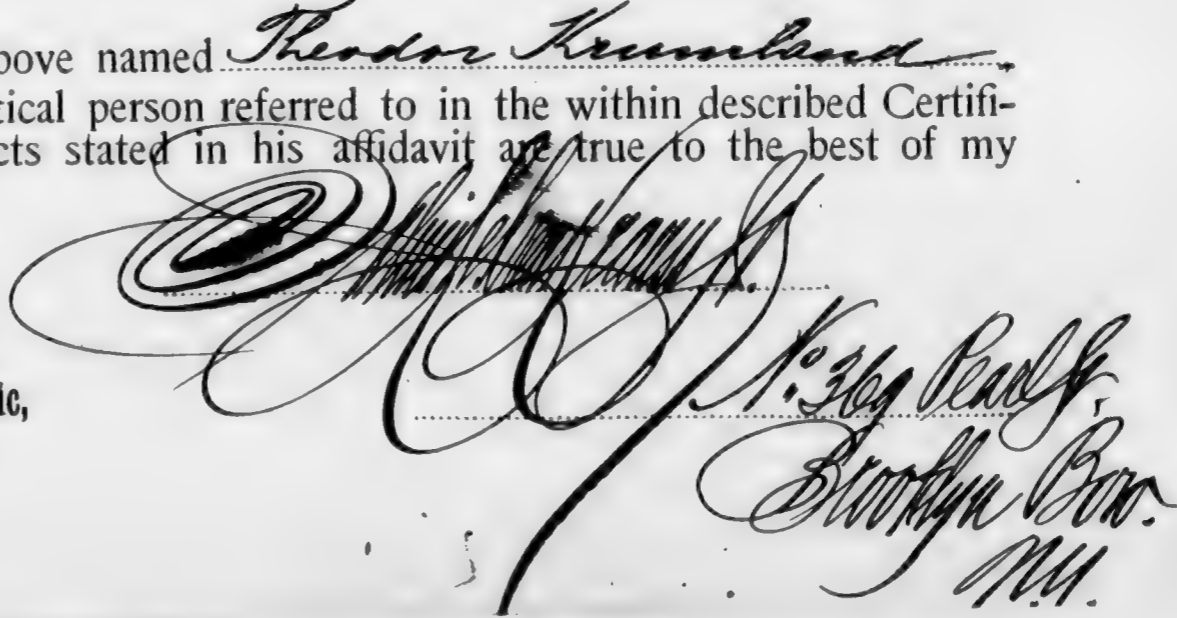 bove named Theodor Krumland.
tical person referred to in the within described Certifi-
cts stated in his affidavit are true to the best of my
No. 369 Pearl St.
ic,
Brooklyn Boro.
N.Y.